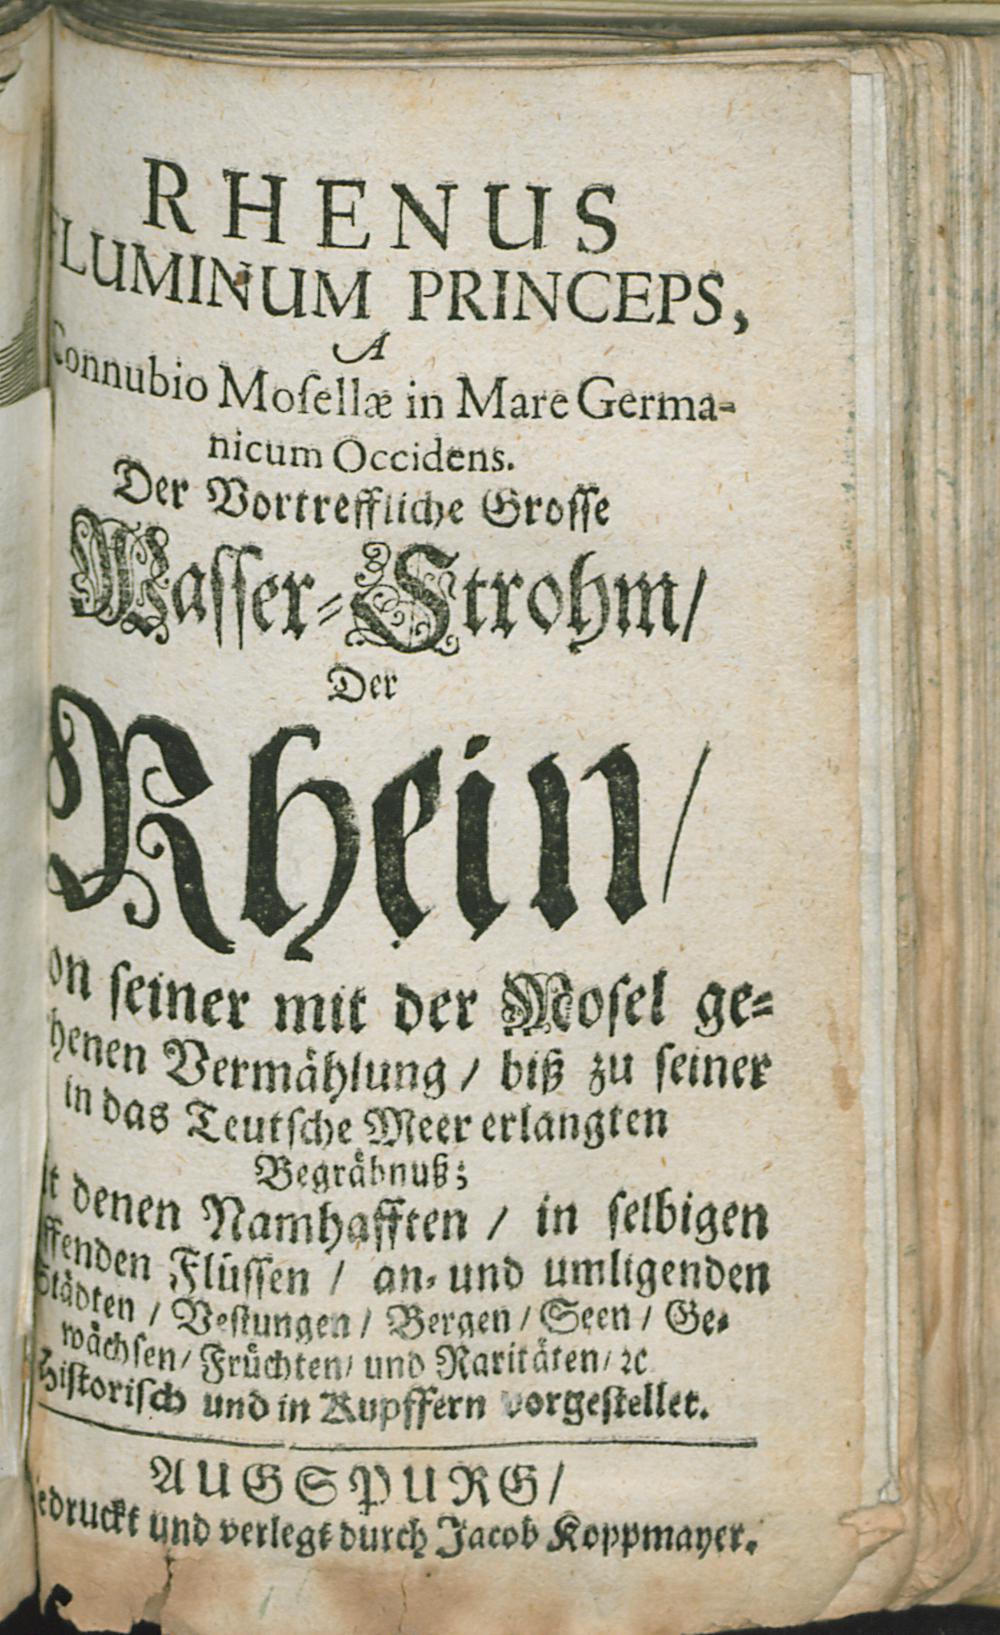 RHENUS
FLUMINUM PRINCEPS,
A
Connubio Moſellæ in Mare Germa-
nicum Occidens.
Der Vortreffliche Groſſe
Waſſer-Strohm/
Der
Rhein/
on ſeiner mit der Moſel ge-
henen Vermaͤhlung / biß zu ſeiner
in das Teutſche Meer erlangten
Begraͤbnuß;
denen Namhafften / in ſelbigen
ffenden Fluͤſſen / an- und umligenden
Staͤdten / Veſtungen / Bergen / Seen / Ge-
waͤchſen / Fruͤchten / und Raritaͤten / ꝛc
Hiſtoriſch und in Kupffern vorgeſtellet.
AUGSPURG/
edruckt und verlegt durch Jacob Koppmayer.